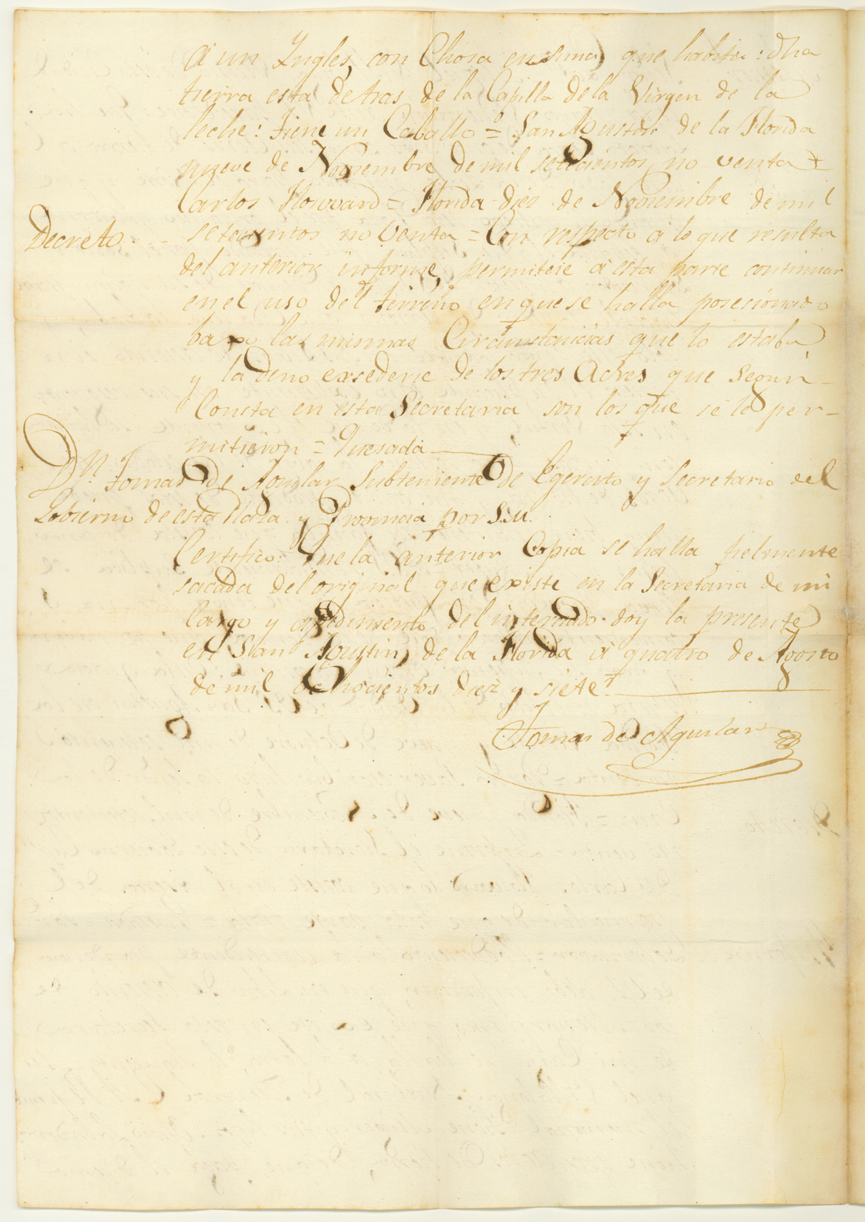 á un Ingles, con Chosa en que habita: dha
tierra está detras de la Capilla de la Virgen de la
leche: tiene un Caballo = San Agustin de la Florida
nueve de Noviembre de mil setecientos noventa =
Carlos Howard = Florida dies de Noviembre de mil
Decreto. setecientos noventa = Con respecto a lo que resulta
del anterior informe, permitese á esta parte continuar
en el uso del terreno en que se halla posecionado
baxo las mismas Circunstancias que lo estaba
y la de no exsederse de los tres Acres que segun
Consta en esta Secretaria son los que se le per-
mitieron = Quesada
Dn. Tomas de Aguilar Subteniente de Egercito y Secretario del
Gobierno de esta Plaza y Provincia por S. M.
Certifico: Que la anterior Copia se halla fielmente
sacada del original que existe en la Secretaria de mi
Cargo y á pedimento del interesado doy la presente
en San Agustin de la Florida á quatro de Agosto
de mil ochocientos diez y siete
Tomas de Aguilar